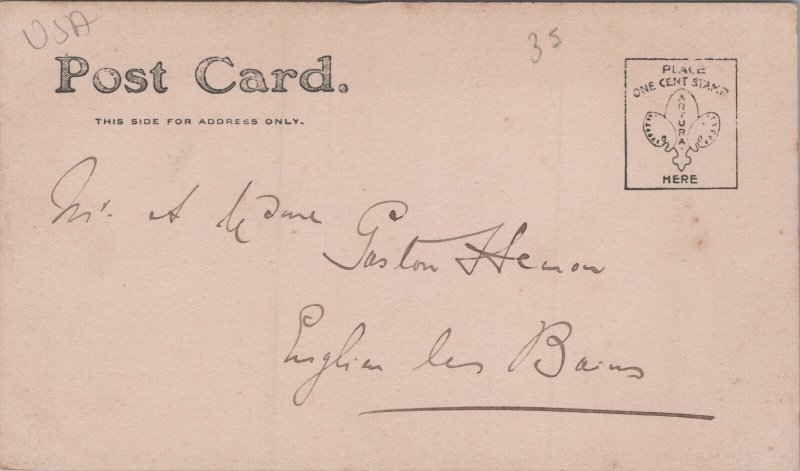 USA
35
Post Card.
THIS SIDE FOR ADDRESS ONLY.
PLACE
ONE CENT STAMP
ARTURA
HERE
Mr. et Mdme
Gaston Hemon
Enghien les Bains